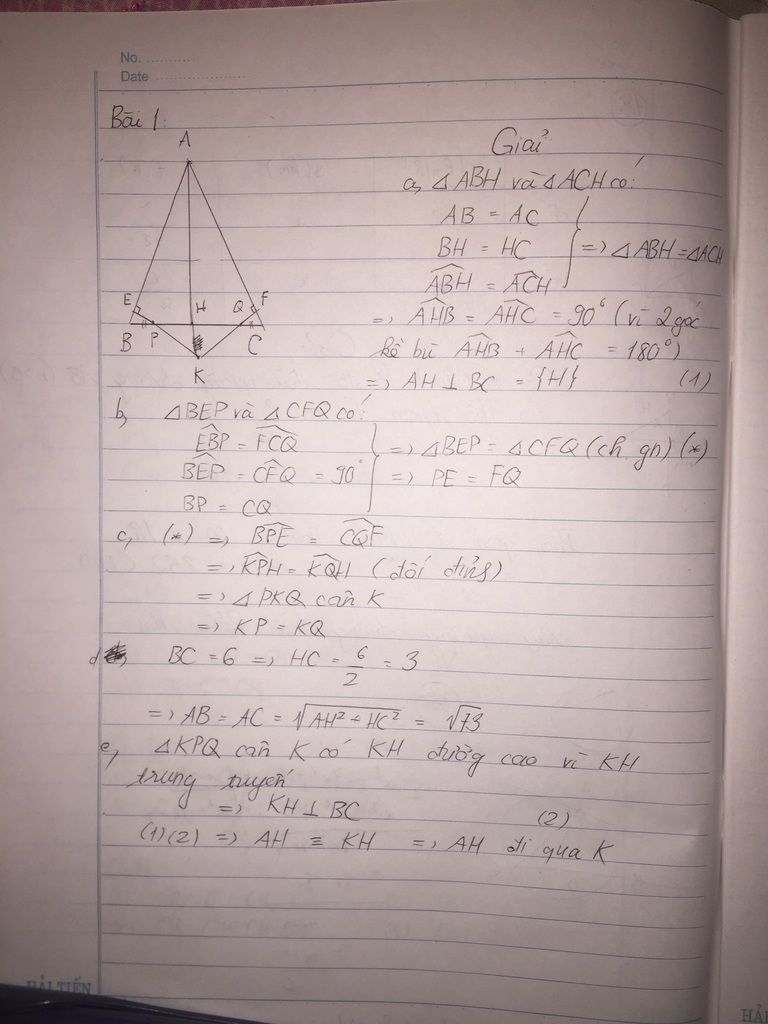 No. ............
Date ......................
Bài 1:
A
E
H
Q
F
B
P
C
K
Giải
a, △ABH và △ACH có:
AB = AC
BH = HC
ABH = ACH
=> △ABH = △ACH
=> AHB = AHC = 90° (vì 2 góc
kề bù AHB + AHC = 180°)
=> AH ⊥ BC = {H} (1)
b, △BEP và △CFQ có:
EBP = FCQ
BEP = CFQ = 90°
BP = CQ
=> △BEP = △CFQ (ch. gn) (*)
=> PE = FQ
c, (*) => BPE = CQF
=> KPH = KQH (đối đỉnh)
=> △PKQ cân K
=> KP = KQ
d, BC = 6 => HC = 6/2 = 3
=> AB = AC = √(AH² + HC²) = √73
e, △KPQ cân K có KH đường cao vì KH
trung tuyến
=> KH ⊥ BC (2)
(1)(2) => AH ≡ KH => AH đi qua K
HẢI TIẾN
HẢI